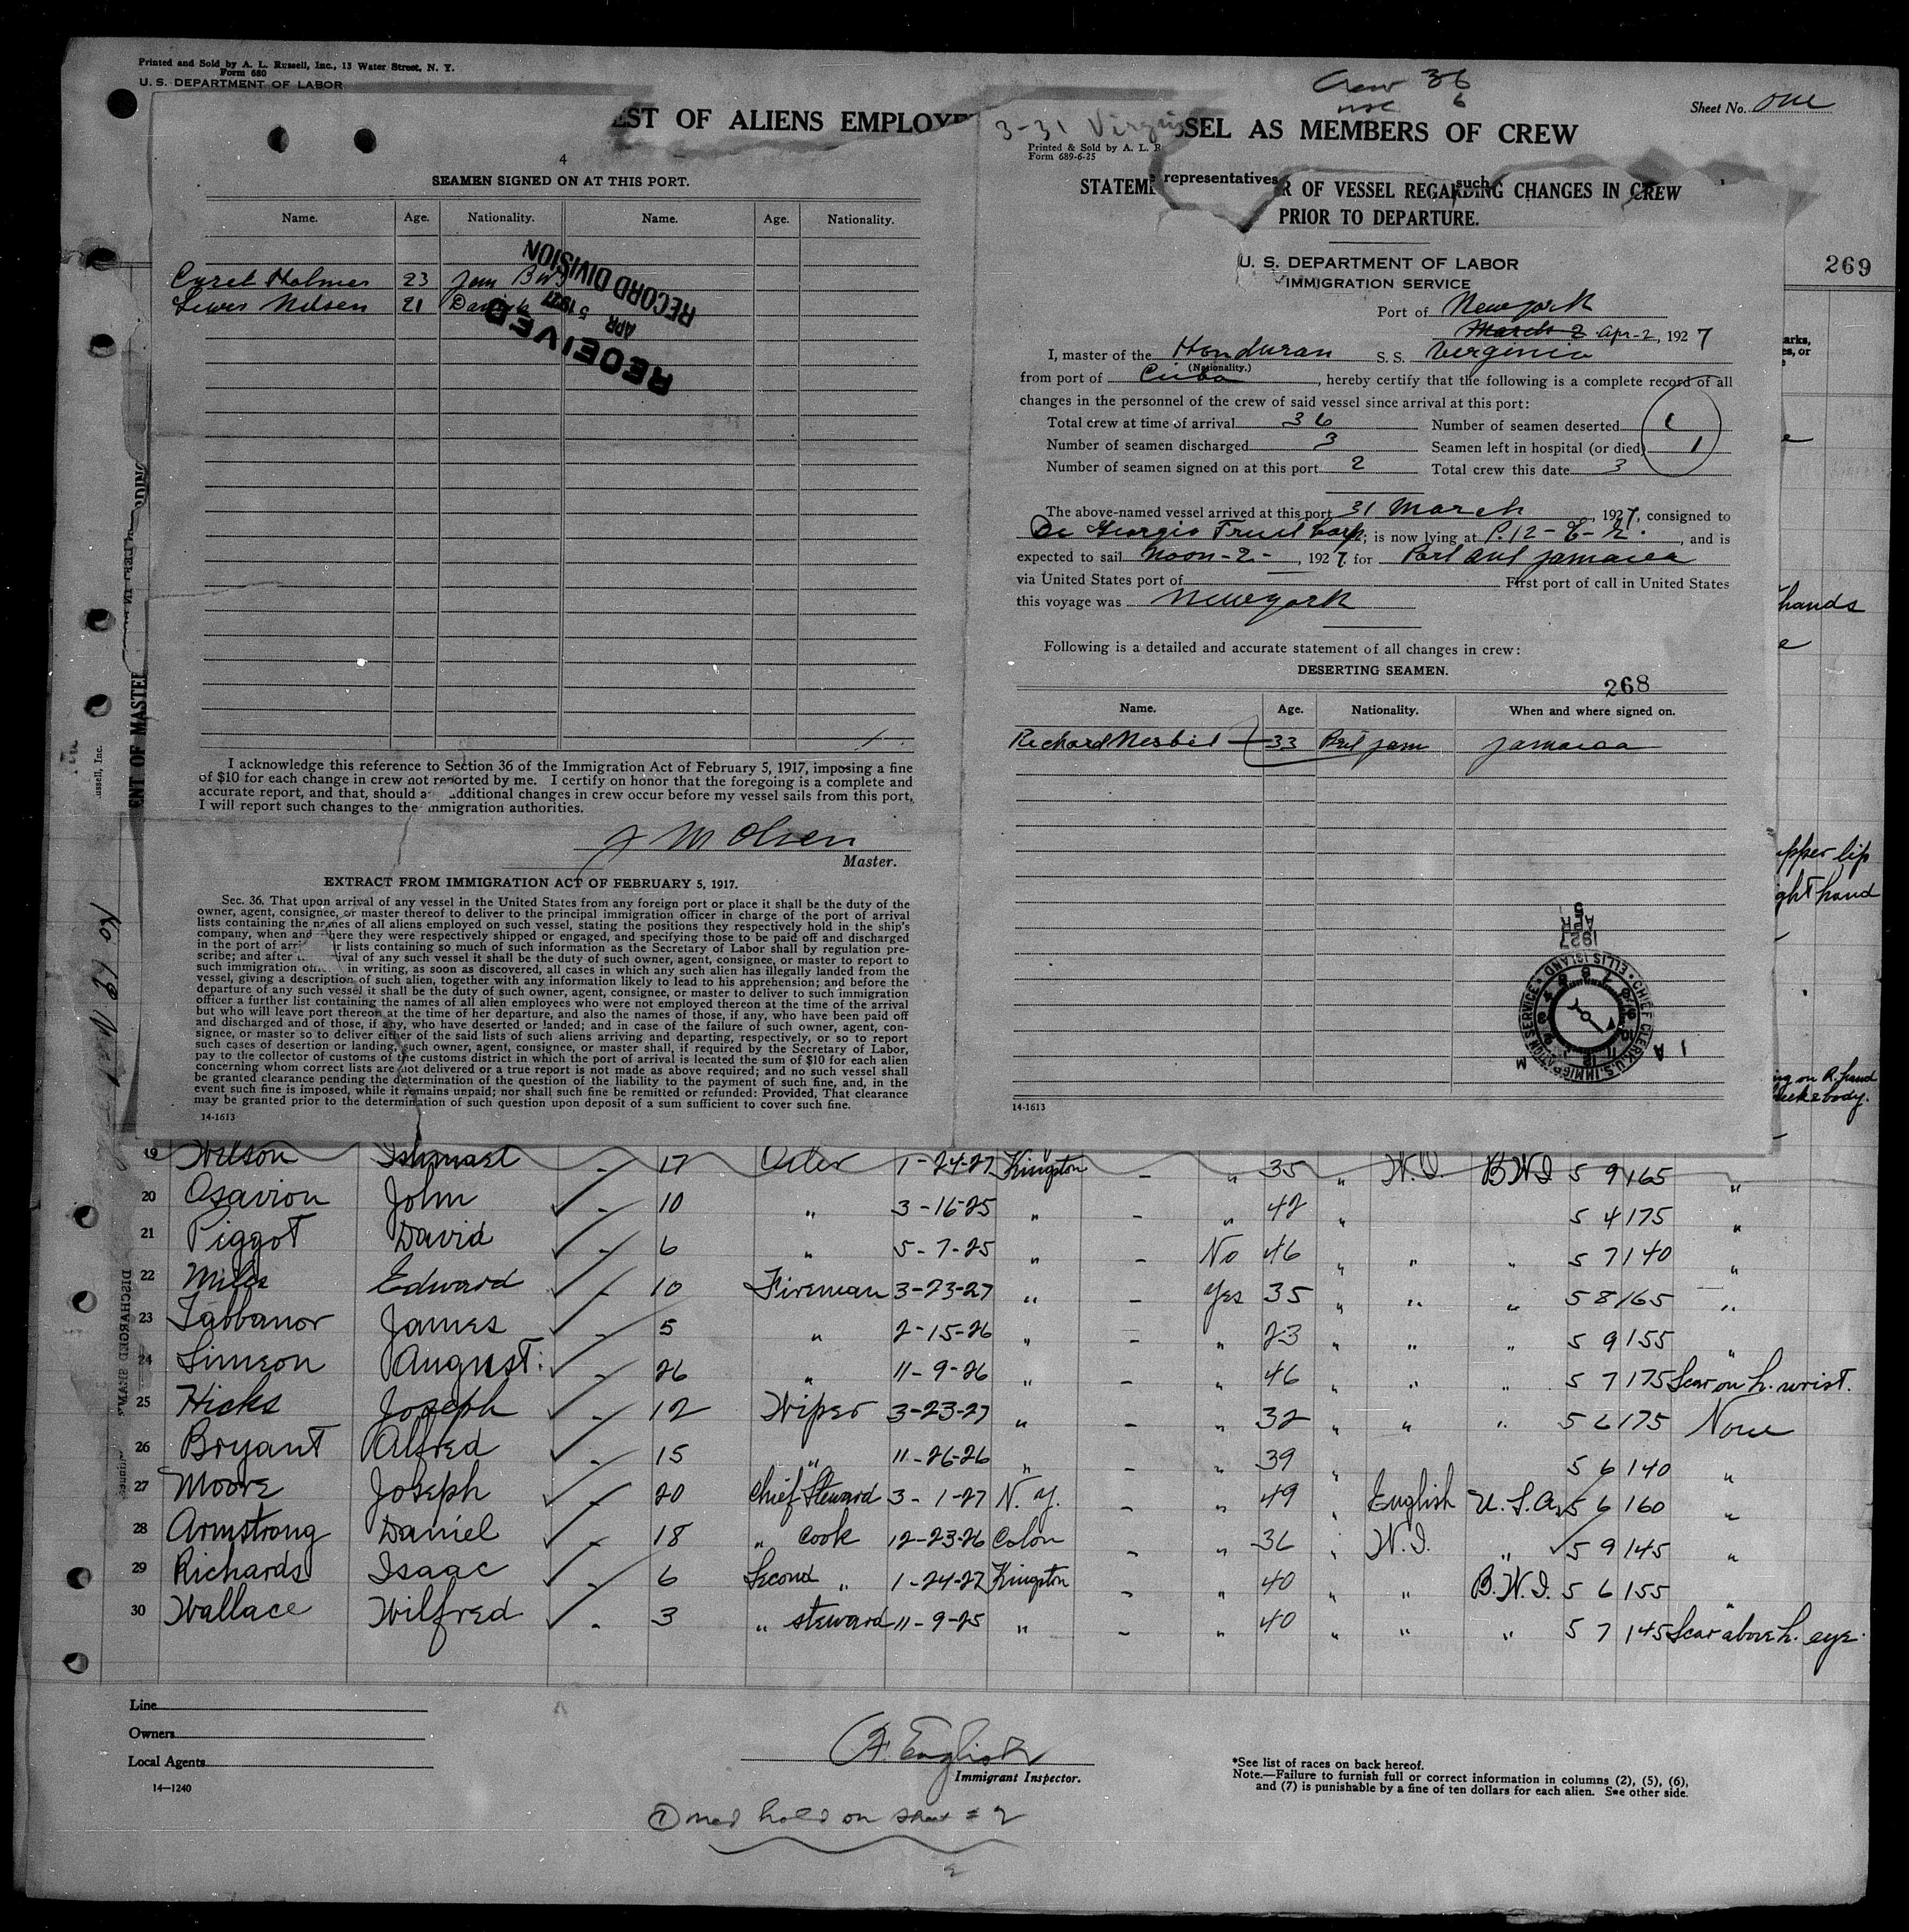 Printed and Sold by A. L. Russell, Inc., 13 Water Street, N. Y.
Form 680
U. S. DEPARTMENT OF LABOR
EST OF ALIENS EMPLOYE
SSEL AS MEMBERS OF CREW
Crew 36
6
Sheet No. one
269
4
SEAMEN SIGNED ON AT THIS PORT.
Name. Age. Nationality. Name. Age. Nationality.
Holmes 23 Jam B W I
Lewis Nilsen 21
RECEIVED
APR 5 1927
RECORD DIVISION
I acknowledge this reference to Section 36 of the Immigration Act of February 5, 1917, imposing a fine
of $10 for each change in crew not reported by me. I certify on honor that the foregoing is a complete and
accurate report, and that, should additional changes in crew occur before my vessel sails from this port,
I will report such changes to the immigration authorities.
J M Olsen
Master.
EXTRACT FROM IMMIGRATION ACT OF FEBRUARY 5, 1917.
Sec. 36. That upon arrival of any vessel in the United States from any foreign port or place it shall be the duty of the
owner, agent, consignee, or master thereof to deliver to the principal immigration officer in charge of the port of arrival
lists containing the names of all aliens employed on such vessel, stating the positions they respectively hold in the ship's
company, when and where they were respectively shipped or engaged, and specifying those to be paid off and discharged
in the port of arri r lists containing so much of such information as the Secretary of Labor shall by regulation pre-
scribe; and after ival of any such vessel it shall be the duty of such owner, agent, consignee, or master to report to
such immigration offi in writing, as soon as discovered, all cases in which any such alien has illegally landed from the
vessel, giving a description of such alien, together with any information likely to lead to his apprehension; and before the
departure of any such vessel it shall be the duty of such owner, agent, consignee, or master to deliver to such immigration
officer a further list containing the names of all alien employees who were not employed thereon at the time of the arrival
but who will leave port thereon at the time of her departure, and also the names of those, if any, who have been paid off
and discharged and of those, if any, who have deserted or landed; and in case of the failure of such owner, agent, con-
signee, or master so to deliver either of the said lists of such aliens arriving and departing, respectively, or so to report
such cases of desertion or landing, such owner, agent, consignee, or master shall, if required by the Secretary of Labor,
pay to the collector of customs of the customs district in which the port of arrival is located the sum of $10 for each alien
concerning whom correct lists are not delivered or a true report is not made as above required; and no such vessel shall
be granted clearance pending the determination of the question of the liability to the payment of such fine, and, in the
event such fine is imposed, while it remains unpaid; nor shall such fine be remitted or refunded: Provided, That clearance
may be granted prior to the determination of such question upon deposit of a sum sufficient to cover such fine.
14-1613
3-31 Virgin
Printed & Sold by A. L. R
Form 689-6-25
representatives
such
STATEM R OF VESSEL REGARDING CHANGES IN CREW
PRIOR TO DEPARTURE.
U. S. DEPARTMENT OF LABOR
IMMIGRATION SERVICE
Port of New York
March 2 Apr-2, 1927
I, master of the Honduran S. S. Virginia
(Nationality.)
from port of Cuba, hereby certify that the following is a complete record of all
changes in the personnel of the crew of said vessel since arrival at this port:
Total crew at time of arrival 36 Number of seamen deserted 1
Number of seamen discharged 3 Seamen left in hospital (or died) 1
Number of seamen signed on at this port 2 Total crew this date 3
The above-named vessel arrived at this port 31 March, 1927, consigned to
Di Georgio Fruit Corp; is now lying at P. 12 - E - R., and is
expected to sail Noon-2-, 1927. for Port Ant Jamaica
via United States port of First port of call in United States
this voyage was New York
Following is a detailed and accurate statement of all changes in crew:
DESERTING SEAMEN.
268
Name. Age. Nationality. When and where signed on.
Richard Nesbit 33 Brit Jam Jamaica
1927 APR 5
CHIEF CLERK U. S. IMMIGRATION SERVICE ELLIS ISLAND
A M
14-1613
arks,
es, or
hands
upper lip
ght hand
ng on R. hand
neck & body.
ENT OF MASTE
ussell, Inc.
19 Wilson Ishmael - 17 Oiler 1-24-27 Kingston - " 35 " W.I. BWI 5 9 165 "
20 Osavion John - 10 " 3-16-25 " - " 42 " 5 4 175 "
21 Piggot David - 6 " 5-7-25 " - No 46 " " " 5 7 140 "
22 Miles Edward - 10 Fireman 3-23-27 " - Yes 35 " " " 5 8 165 "
23 Tabbanor James - 5 " 2-15-26 " - " 23 " " " 5 9 155 "
24 Simeon August. - 26 " 11-9-26 " - " 46 " " " 5 7 175 Scar on L. wrist.
25 Hicks Joseph - 12 Wiper 3-23-27 " - " 32 " " " 5 6 175 None
26 Bryant Alfred - 15 " 11-26-26 " - " 39 " 5 6 140 "
27 Moore Joseph - 20 Chief Steward 3-1-27 N. Y. - " 49 " English U.S.A. 5 6 160 "
28 Armstrong Daniel - 18 " cook 12-23-26 Colon - " 36 " W.I. " 5 9 145 "
29 Richards Isaac - 6 Second " 1-24-27 Kingston - " 40 " " B.W.I. 5 6 155 "
30 Wallace Wilfred - 3 " steward 11-9-25 " - " 40 " " " 5 7 145 Scar above L. eye.
Line
Owners
Local Agents
14—1240
A. English
Immigrant Inspector.
*See list of races on back hereof.
Note.—Failure to furnish full or correct information in columns (2), (5), (6),
and (7) is punishable by a fine of ten dollars for each alien. See other side.
① med hold on sheet # 2